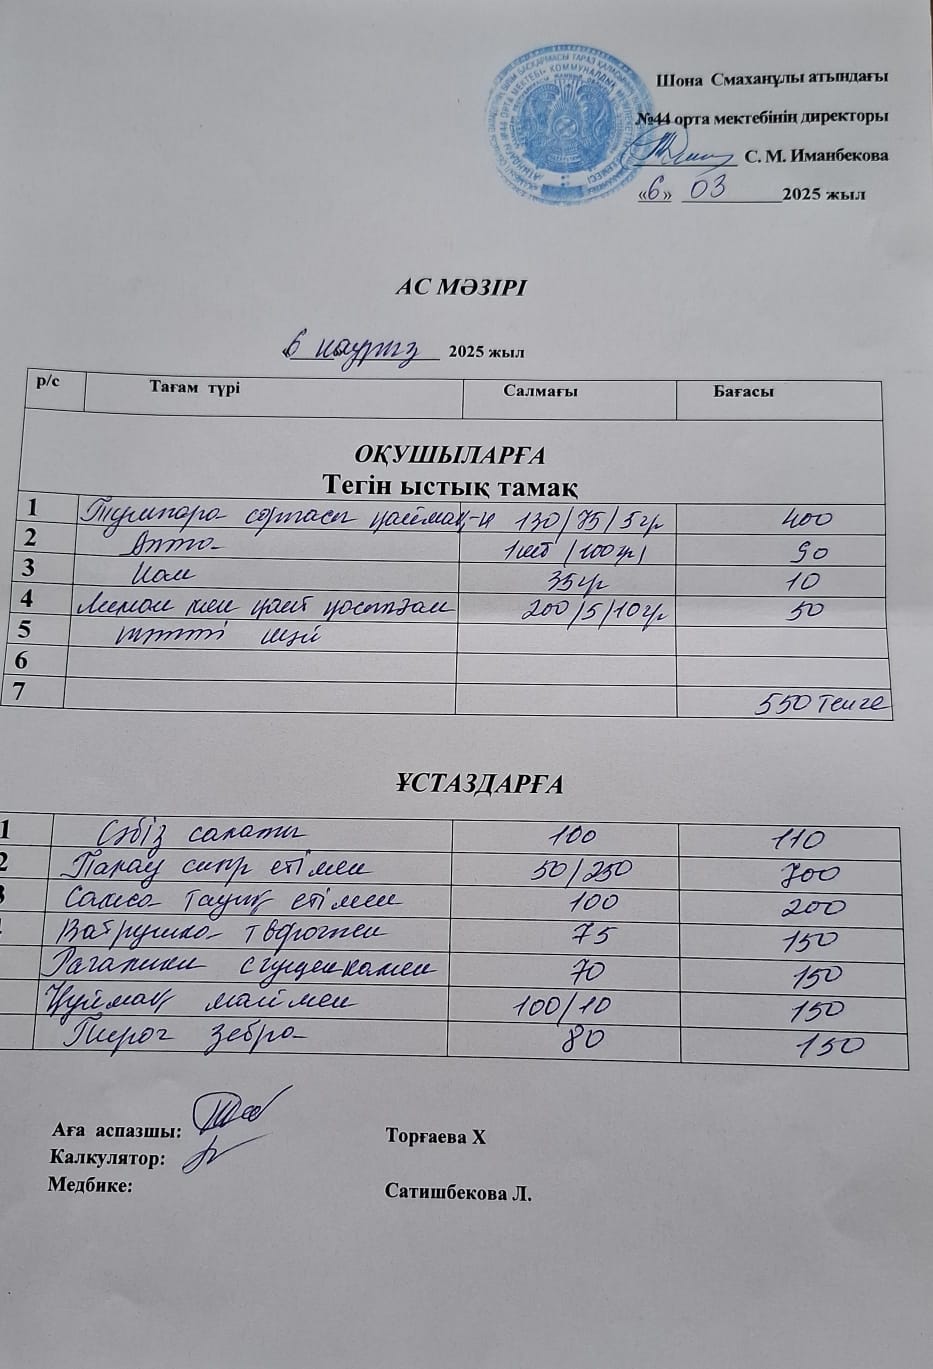 Шона Смаханұлы атындағы
№44 орта мектебінің директоры
С. М. Иманбекова
«6» 03 2025 жыл
АС МӘЗІРІ
6 наурыз 2025 жыл
р/с Тағам түрі Салмағы Бағасы
ОҚУШЫЛАРҒА
Тегін ыстық тамақ
1 сорпасы 130/75/5гр 400
2 1шт (100гр) 90
3 Нан 35гр 10
4 Лимон мен қант қосылған 200/5/10гр 50
5 тәтті шәй
6
7 550 тенге
ҰСТАЗДАРҒА
1 Сәбіз салаты 100 110
2 Палау сиыр етімен 50/250 700
Самса тауық етімен 100 200
Ватрушка творогпен 75 150
Рагалики сгущенкамен 70 150
Құймақ маймен 100/10 150
Пирог зебра 80 150
Аға аспазшы: Торғаева Х
Калкулятор:
Медбике: Сатишбекова Л.